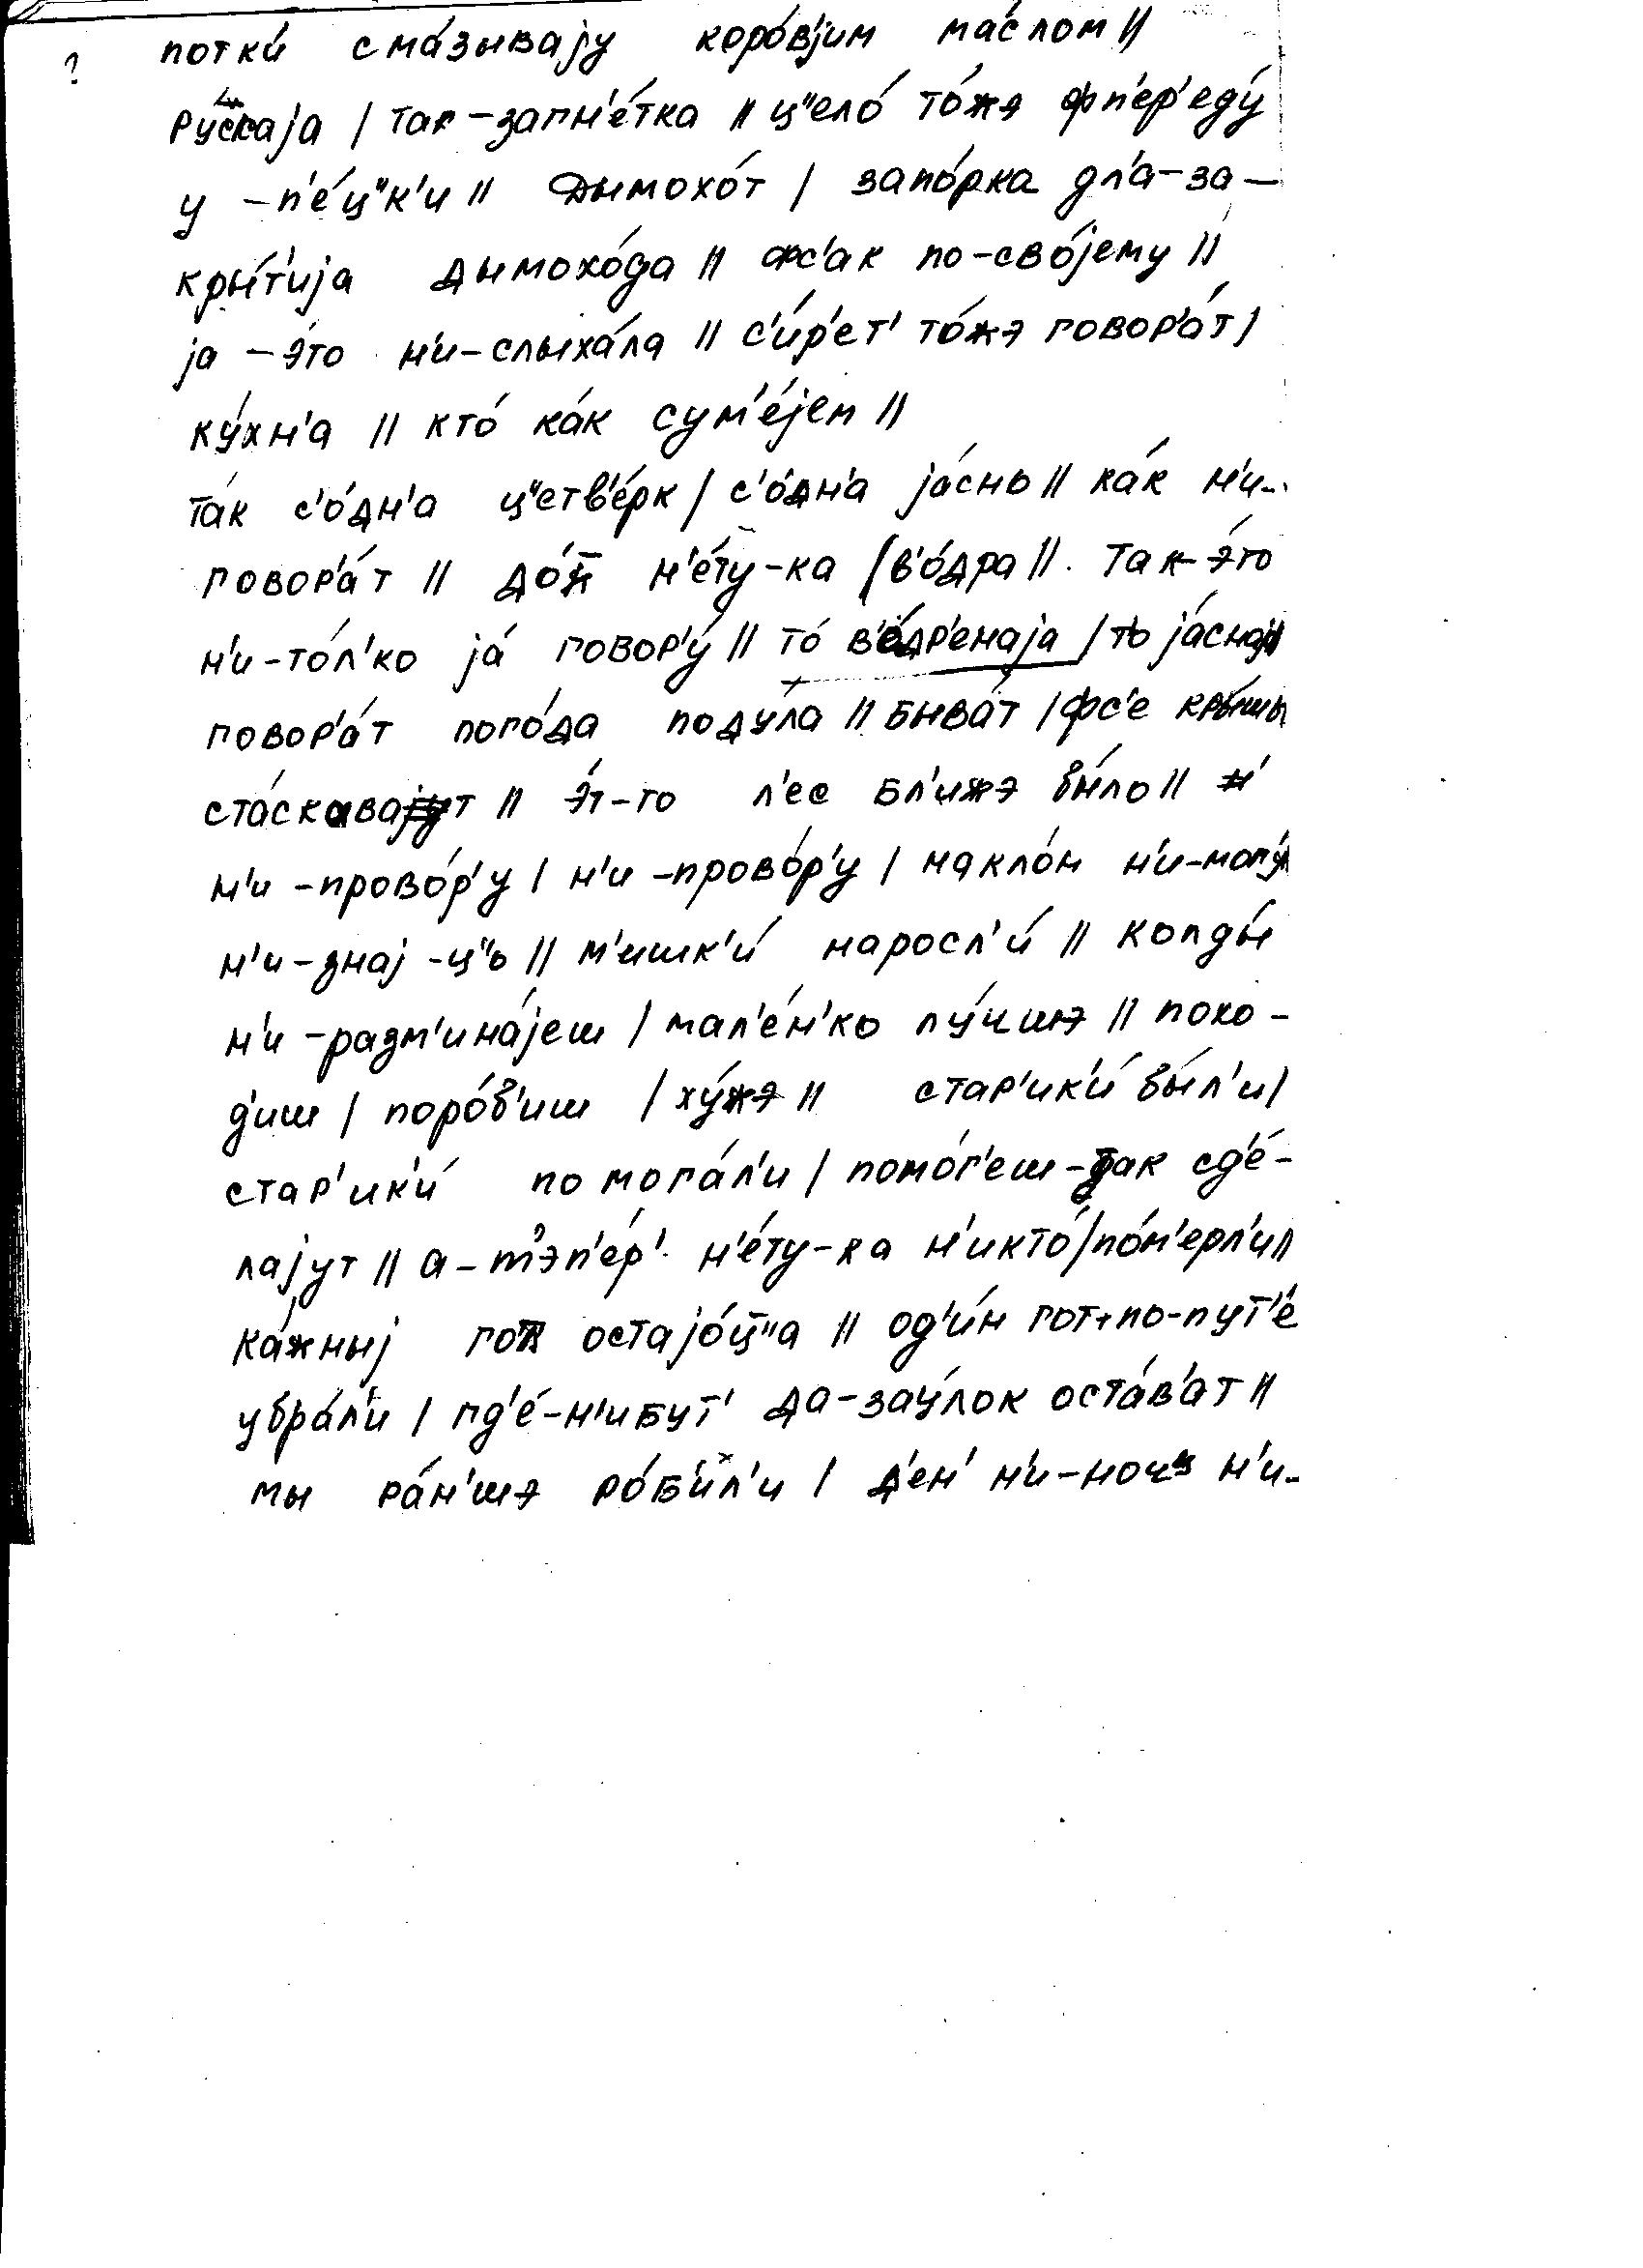 ? потки́ сма́зываjу коро́вjим ма́слом ||
ру́скаjа | так-загн'е́тка || ц"ело́ то́жэ фп'ер'еду́
у-п'е́ц"к'и || дымохо́т | запо́рка дл'а-за-
кры́т'иjа дымохо́да || фс'ак по-сво́jему ||
jа-э́то н'и-слыха́ла || с'и́р'ет' то́жэ говор'а́т |
ку́хн'а || кто́ ка́к сум'е́jем ||
та́к с'о́дн'а ц"етв'е́рк | с'о́дн'а jа́сно || ка́к н'и-
говор'а́т || н'е́ту-ка | в'о́дра || так-э́то
н'и-то́л'ко jа́ говор'у́ || то́ в'о́др'енаjа | то jа́снаjа
говор'а́т пого́да поду́ла || быва́т | фс'е кры́шы
ста́скават || э́т-то л'ес бл'ижэ бы́ло ||
н'и-прово́р'у | н'и-прово́р'у | накло́н н'и-могу́ ||
н'и-знаj-ц"о || м'ишк'и́ наросл'и́ || когды́
н'и-разм'ина́jеш | мал'е́н'ко лу́чшэ || похо-
д'иш | поро́б'иш | ху́жэ || стар'ик'и́ бы́л'и |
стар'ик'и́ помога́л'и | помо́г'еш-так сд'е́-
лаjут || а-т'эп'е́р' н'е́ту-ка н'икто́ | по́м'ерл'и ||
ка́жныj гот остаjо́ц"а || од'и́н гот-по-пут'е́
убра́л'и | гд'е́-н'ибут' да-зау́лок оста́в'ат ||
мы ра́н'шэ ро́б'ил'и | д'ен' н'и-ноч н'и-